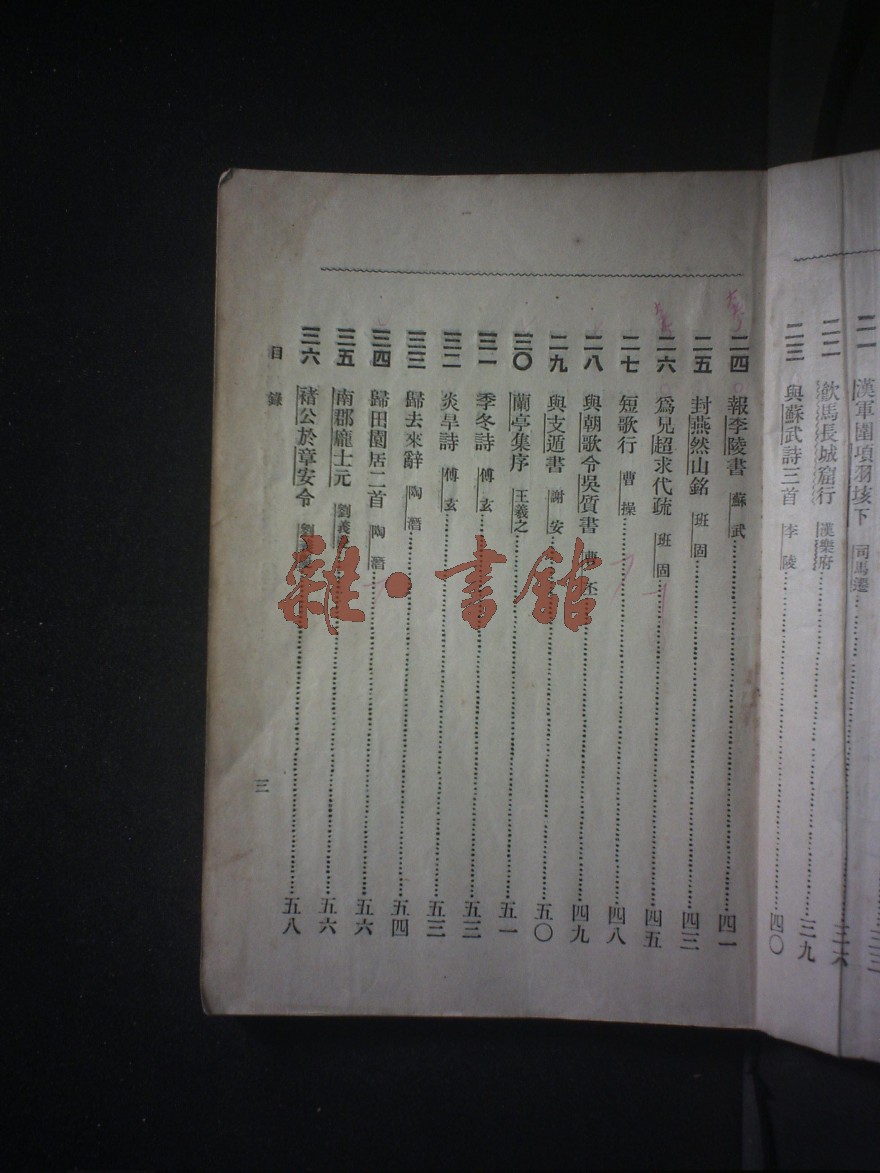 二一 漢軍圍項羽垓下 司馬遷 三三
二二 飲馬長城窟行 漢樂府 三六
二三 與蘇武詩三首 李陵 三九
四〇
二四 報李陵書 蘇武 四一
二五 封燕然山銘 班固 四三
二六 爲兄超求代疏 班固 四五
二七 短歌行 曹操 四八
二八 與朝歌令吳質書 曹丕 四九
二九 與支遁書 謝安 五〇
三〇 蘭亭集序 王羲之 五一
三一 季冬詩 傅玄 五三
三二 炎旱詩 傅玄 五三
三三 歸去來辭 陶潛 五四
三四 歸田園居二首 陶潛 五六
三五 南郡龐士元 劉義 五六
三六 褚公於章安令 五八
目錄 三
雜·書館